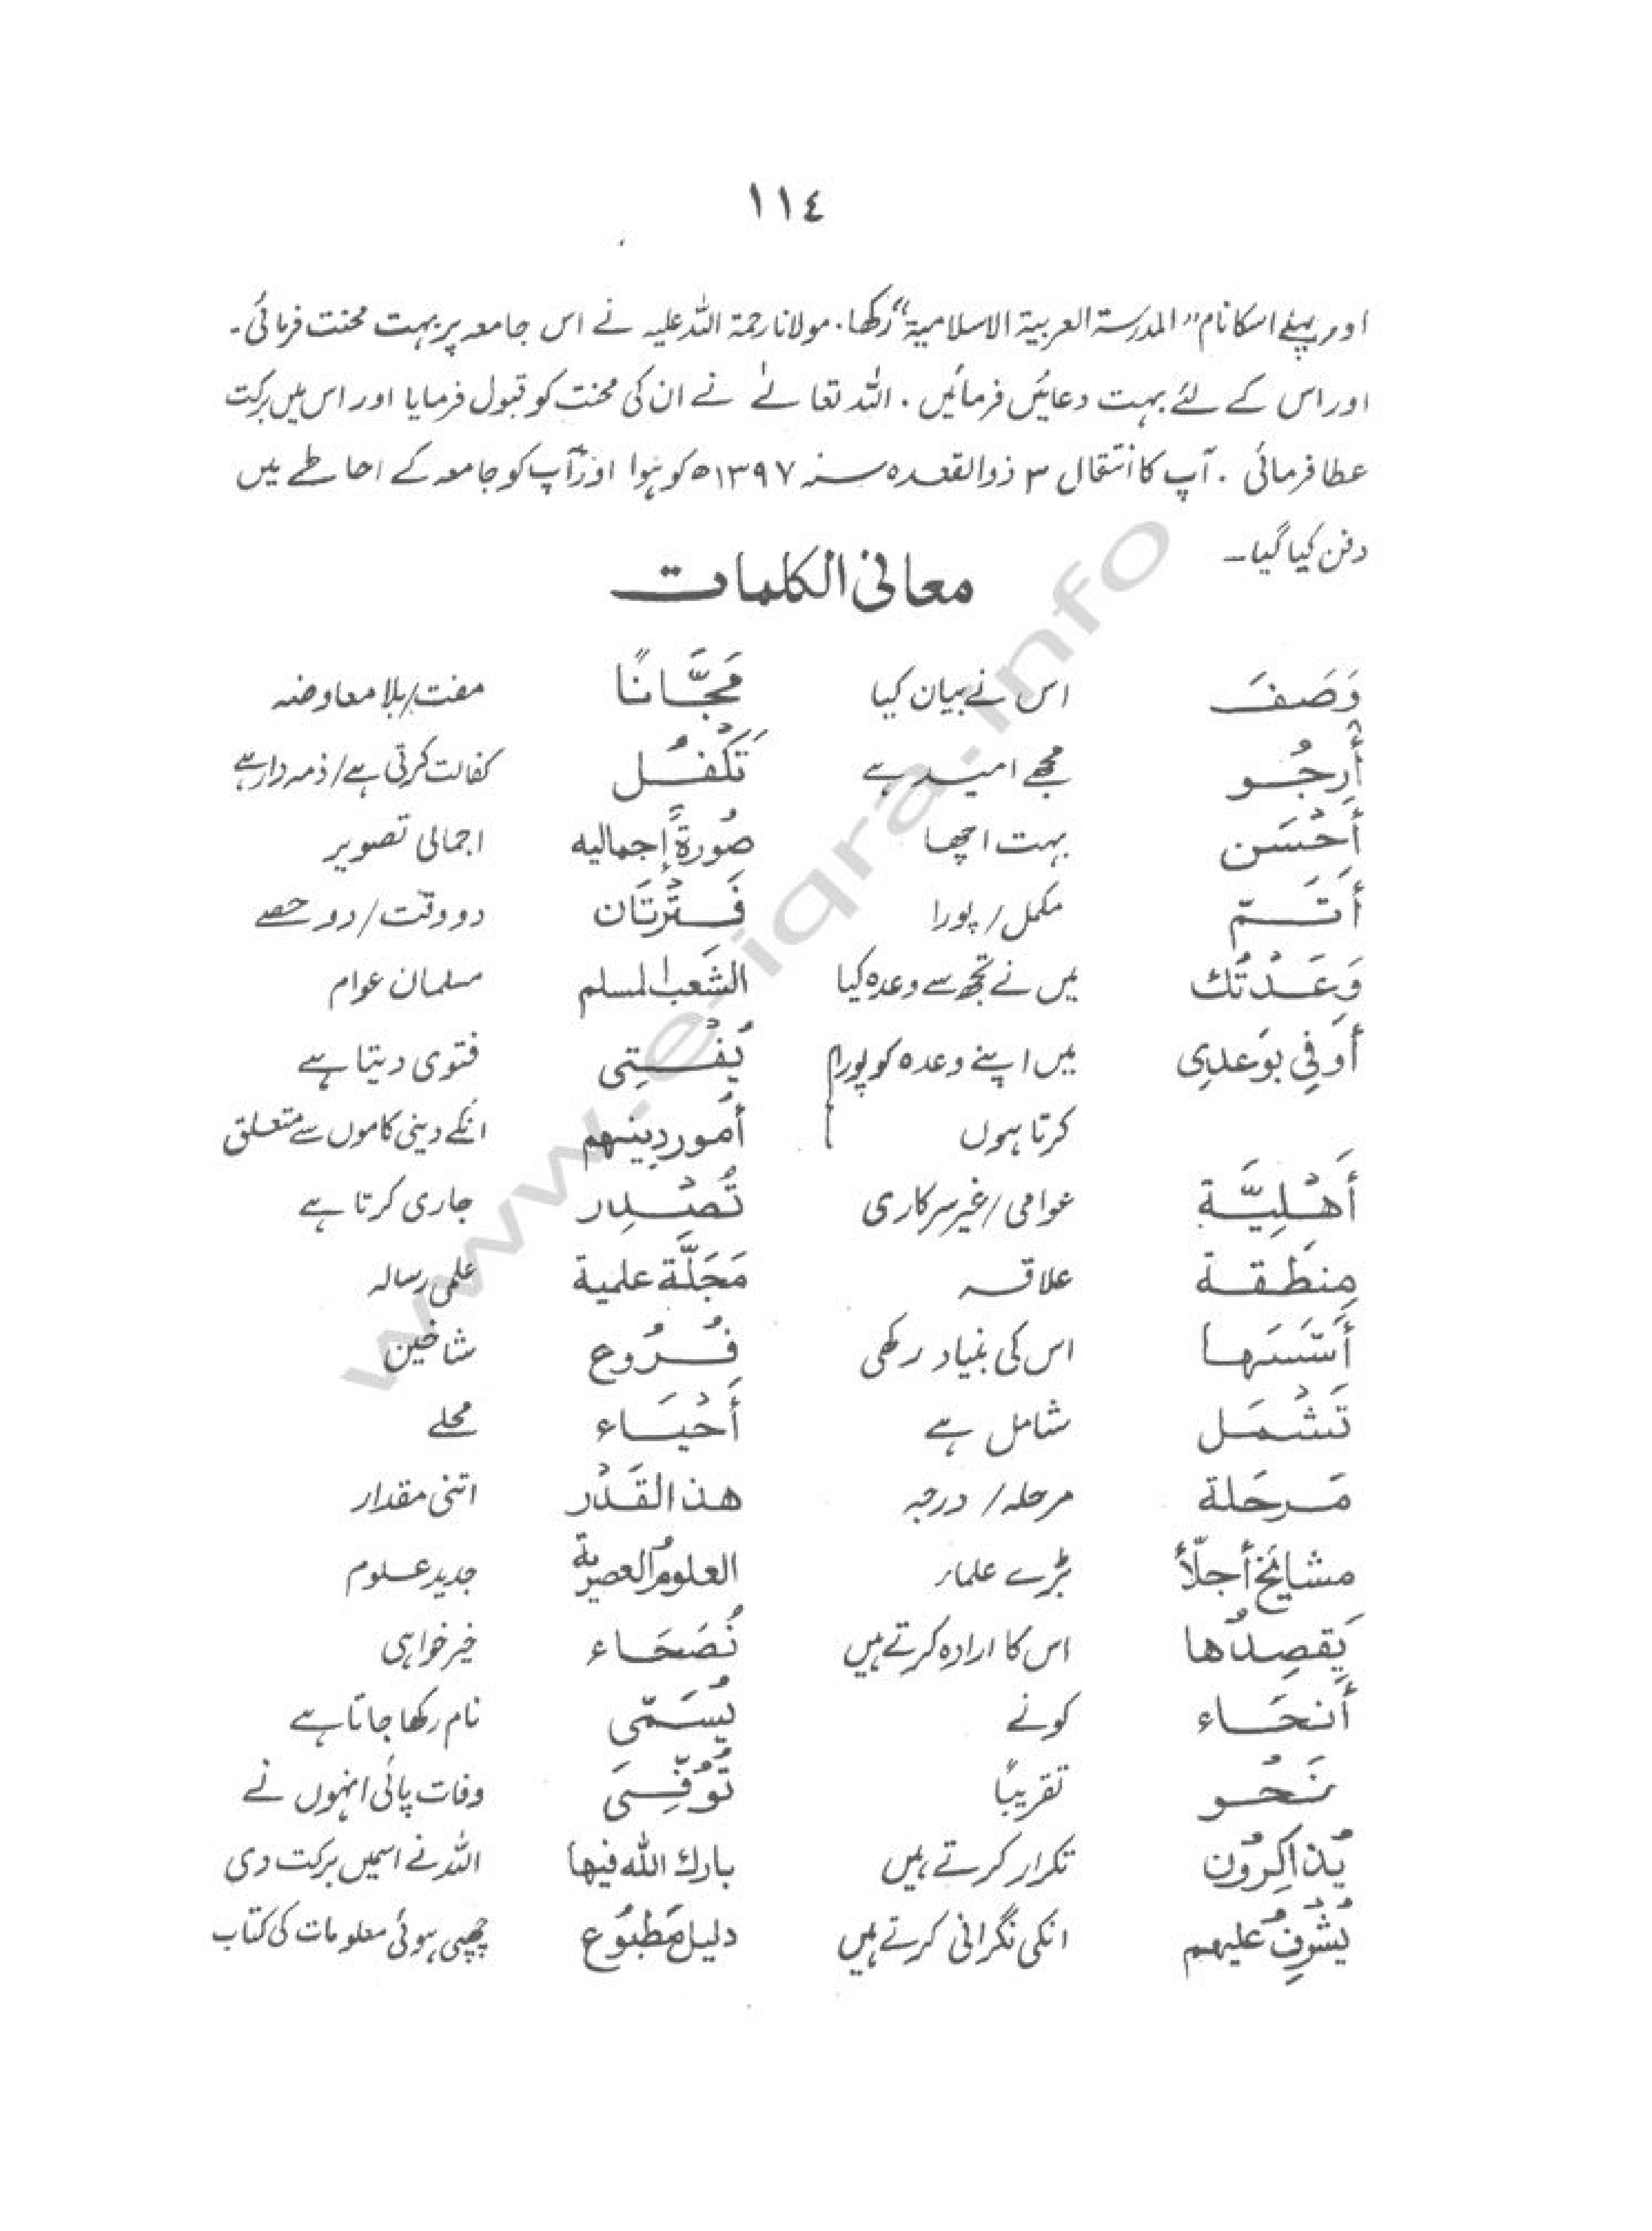 ١١٤
اور پہلے اسکا نام "المدرسۃ العربیۃ الاسلامیۃ" رکھا. مولانا رحمۃ اللہ علیہ نے اس جامعہ پر بہت محنت فرمائی۔
اور اس کے لئے بہت دعائیں فرمائیں. اللہ تعالےٰ نے ان کی محنت کو قبول فرمایا اور اس میں برکت
عطا فرمائی. آپ کا انتقال ۳ ذوالقعدہ سنہ ۱۳۹۷ھ کو ہوا اور آپ کو جامعہ کے احاطے میں
دفن کیا گیا۔
معانی الکلمات
وَصَفَ اس نے بیان کیا مَجَّانًا مفت/بلا معاوضہ
أَرجُو مجھے امید ہے تَكْفُل کفالت کرتی ہے/ذمہ دار ہے
أَحْسَن بہت اچھا صُورةً إجماليه اجمالی تصویر
أَتَمّ مکمل/پورا فَتْرَتَان دو وقت/دو حصے
وَعَدْتُك میں نے تجھ سے وعدہ کیا الشَعب المسلم مسلمان عوام
أوَفِي بوَعدِى میں اپنے وعدہ کو پورا يُفْتِى فتوی دیتا ہے
کرتا ہوں أُمور دِينِهم انکے دینی کاموں سے متعلق
أَهْلِيَّة عوامی/غیر سرکاری تُصْدِر جاری کرتا ہے
مِنطَقة علاقہ مَجَلَّة علمية علمی رسالہ
أَسَّسَها اس کی بنیاد رکھی فُرُوع شاخیں
تَشْمَل شامل ہے أَحْيَاء محلے
مَرحَلة مرحلہ/درجہ هذ القَدْر اتنی مقدار
مشائخ أجلّأ بڑے علماء العلومُ العصرية جدید علوم
يَقصِدُها اس کا ارادہ کرتے ہیں نُصَحَاء خیر خواہی
أَنحَاء کونے يُسَمّى نام رکھا جاتا ہے
نَحْو تقریبًا تُوُفِّيَ وفات پائی انہوں نے
يُذاكِرُون تکرار کرتے ہیں بارك الله فيها اللہ نے اسمیں برکت دی
يُشْرِفُ عليهم انکی نگرانی کرتے ہیں دليل مَطْبُوع چھپی ہوئی معلومات کی کتاب
www.e-iqra.info